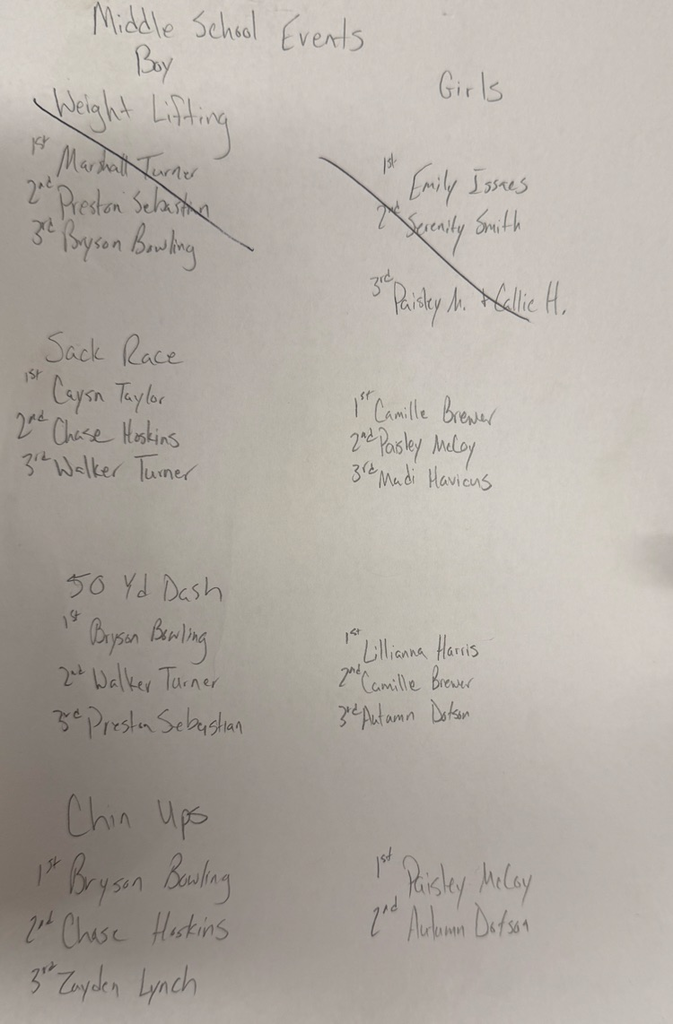 Middle School Events
Boy
Girls
Weight Lifting
1st Marshall Turner
2nd Preston Sebastian
3rd Bryson Bowling
1st Emily Issaes
2nd Serenity Smith
3rd Paisley M. + Callie H.
Sack Race
1st Cayson Taylor
2nd Chase Hoskins
3rd Walker Turner
1st Camille Brewer
2nd Paisley McCoy
3rd Madi Havicus
50 Yd Dash
1st Bryson Bowling
2nd Walker Turner
3rd Preston Sebastian
1st Lillianna Harris
2nd Camille Brewer
3rd Autumn Dotson
Chin Ups
1st Bryson Bowling
2nd Chase Hoskins
3rd Zayden Lynch
1st Paisley McCoy
2nd Autumn Dotson